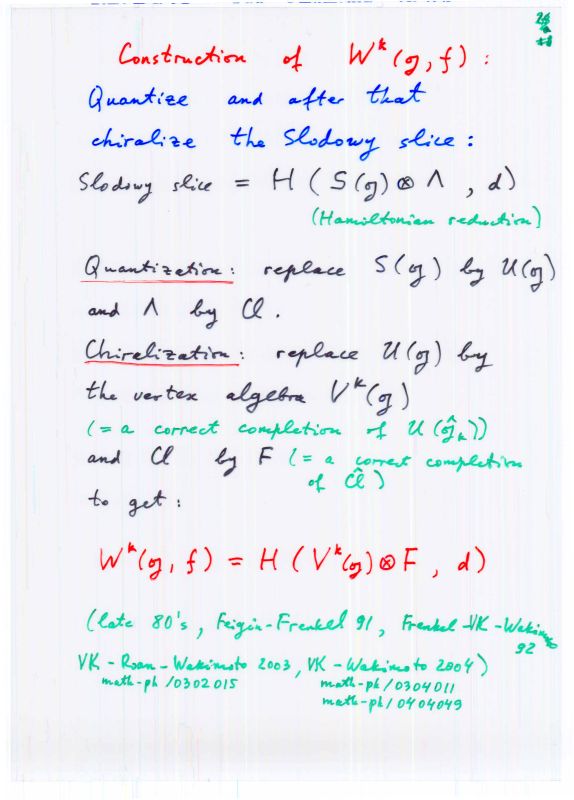 Construction of Wᵏ(𝔤, f) :
Quantize and after that
chiralize the Slodowy slice :
Slodowy slice = H ( S(𝔤) ⊗ Λ , d)
(Hamiltonian reduction)
Quantization: replace S(𝔤) by U(𝔤)
and Λ by Cl .
Chiralization: replace U(𝔤) by
the vertex algebra Vᵏ(𝔤)
(= a correct completion of U(𝔤̂ₖ))
and Cl by F (= a correct completion
of Ĉl )
to get :
Wᵏ(𝔤, f) = H ( Vᵏ(𝔤) ⊗ F , d)
(late 80's , Feigin-Frenkel 91 , Frenkel-VK-Wakimoto
92
VK-Roan-Wakimoto 2003, VK-Wakimoto 2004)
math-ph/0302015 math-ph/0304011
math-ph/0404049